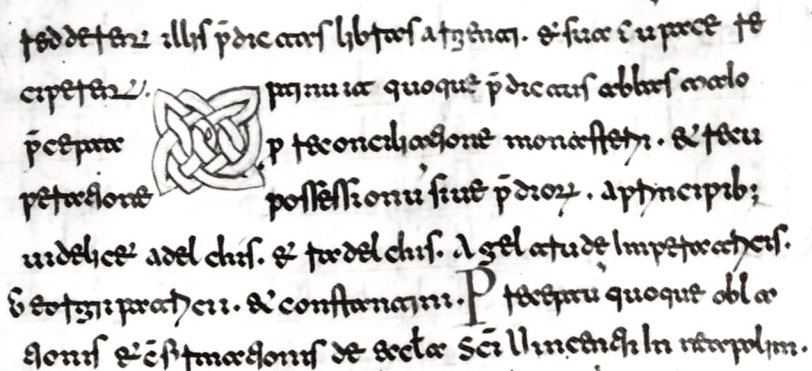 redderet illis p̄dictas libras argenti. & sua cū pace re
ciperet. Optinuit quoque p̄dictus abbas maio
p̄cepta p reconciliatione monasterii. & recu
peratione possessionū siue p̄dioꝝ. a principib;
uidelicet adelchis. & radelchis. Agelatrude Imperatricis.
Georgii patricii. & constantini. Preceptū quoque obla
tionis & c̄firmationis de eccła Sc̄i Vincentii In neapolim.